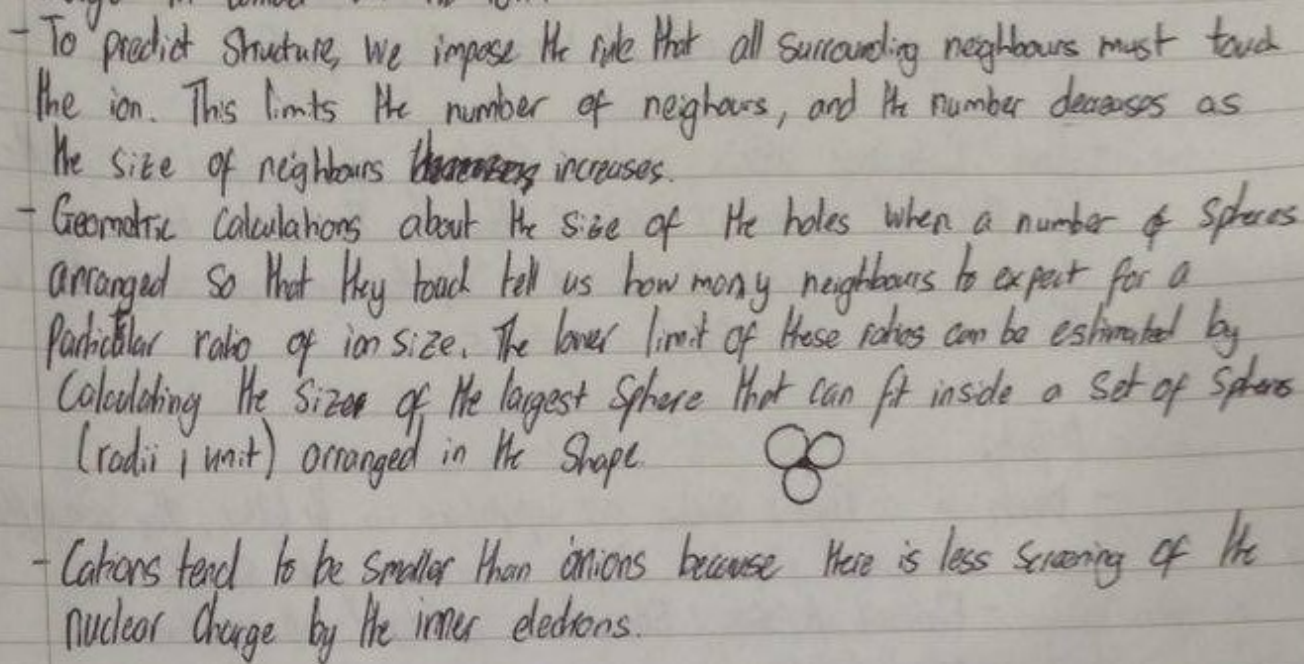 - To predict structure, we impose the rule that all surrounding neighbours must touch
the ion. This limits the number of neighours, and the number decreases as
the size of neighbours increases.
- Geometric calculations about the size of the holes when a number of spheres
arranged so that they touch tell us how many neighbours to expect for a
particular ratio of ion size. The lower limit of these ratios can be estimated by
calculating the size of the largest sphere that can fit inside a set of spheres
(radii 1 unit) arranged in the shape.
- Cations tend to be smaller than anions because there is less screening of the
nuclear charge by the inner electrons.